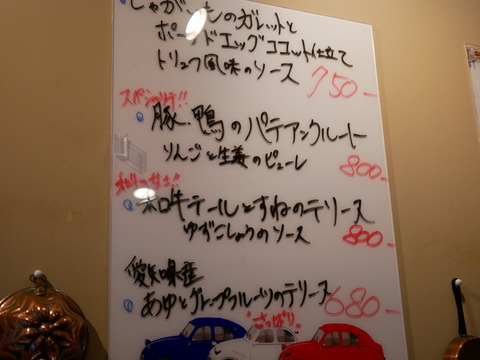 じゃがいものガレットと
ポーチドエッグココット仕立て
トリュフ風味のソース 750-
スペシャリテ!!
豚、鴨のパテアンクルート
りんごと生姜のピューレ 800-
和牛テールとすねのテリーヌ
ゆずこしょうのソース 800-
愛知県産
あゆとグレープフルーツのテリーヌ 680-
さっぱり